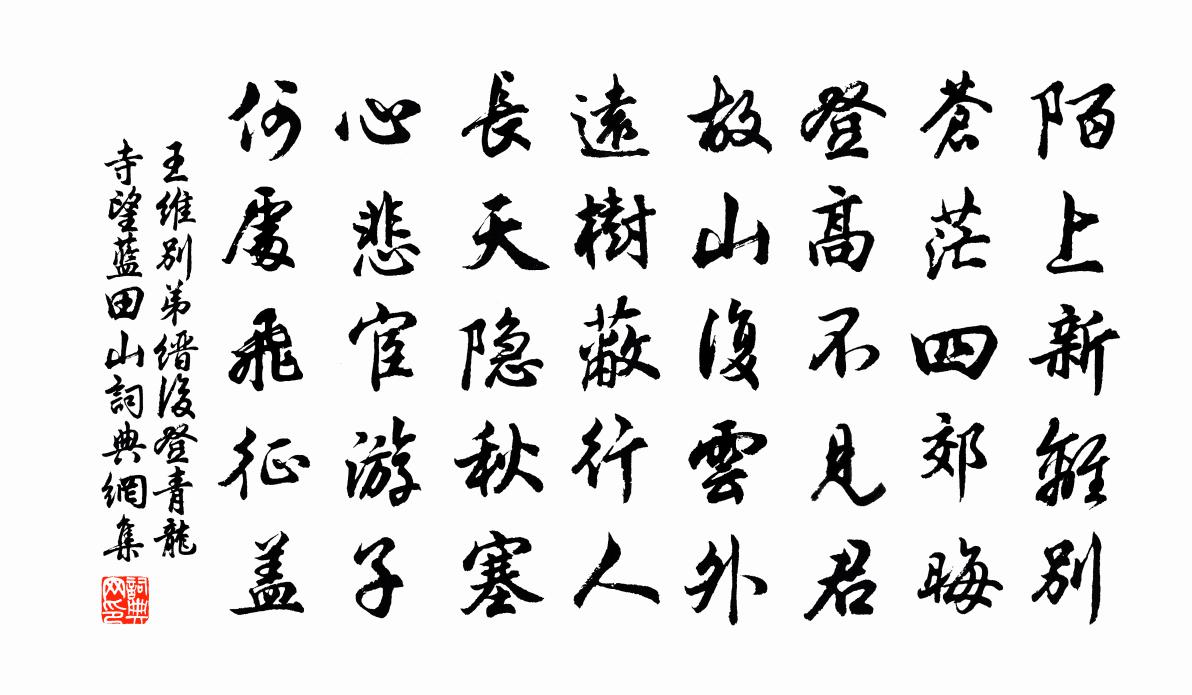 陌上新離别
蒼茫四郊晦
登高不見君
故山復雲外
遠樹蔽行人
長天隐秋塞
心悲宦游子
何處飛征盖
王維别弟縉後登青龍
寺望藍田山詞典網集
詞典
网印